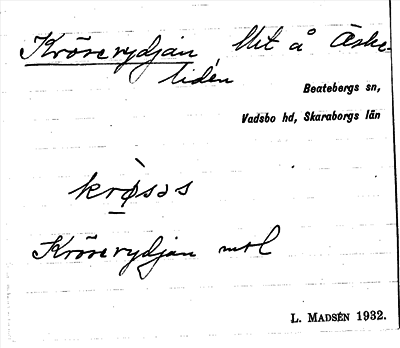 Kröserydjan Mit å Äske
liden
Beatebergs sn,
Vadsbo hd, Skaraborgs län
krø̀səs
Kröserydjan mtl
L. MADSÉN 1932.